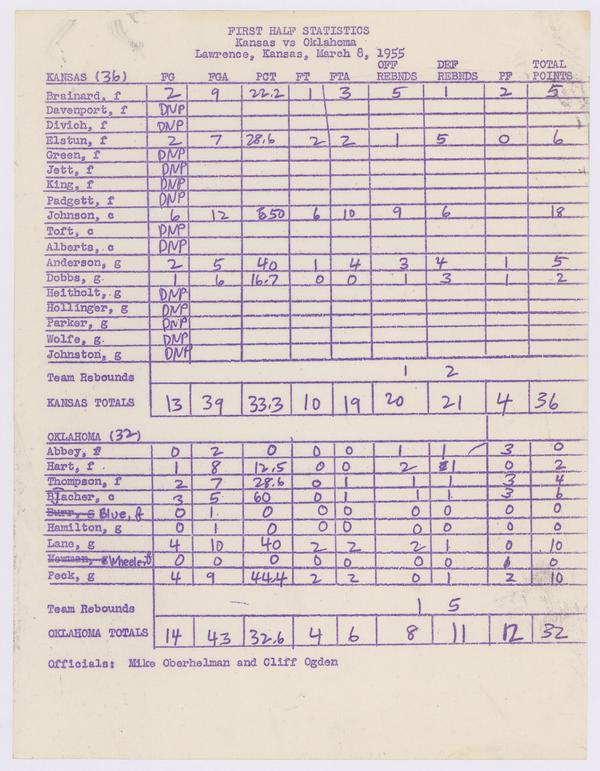 FIRST HALF STATISTICS
Kansas vs Oklahoma
Lawrence, Kansas, March 8, 1955
KANSAS (36) FG FGA PCT FT FTA OFF REBNDS DEF REBNDS PF TOTAL POINTS
Brainard, f 2 9 22.2 1 3 5 1 2 5
Davenport, f DNP
Divich, f DNP
Elstun, f 2 7 28.6 2 2 1 5 0 6
Green, f DNP
Jett, f DNP
King, f DNP
Padgett, f DNP
Johnson, c 6 12 50 6 10 9 6 18
Toft, c DNP
Alberts, c DNP
Anderson, g 2 5 40 1 4 3 4 1 5
Dobbs, g 1 6 16.7 0 0 1 3 1 2
Heitholt, g DNP
Hollinger, g DNP
Parker, g DNP
Wolfe, g DNP
Johnston, g DNP
Team Rebounds 1 2
KANSAS TOTALS 13 39 33.3 10 19 20 21 4 36
OKLAHOMA (32)
Abbey, f 0 2 0 0 0 1 1 3 0
Hart, f 1 8 12.5 0 0 2 1 0 2
Thompson, f 2 7 28.6 0 1 1 1 3 4
Blacher, c 3 5 60 0 1 1 1 3 6
Burr, g Blue, f 0 1 0 0 0 0 0 0 0
Hamilton, g 0 1 0 0 0 0 0 0 0
Lane, g 4 10 40 2 2 2 1 0 10
Newman, g Wheeler, f 0 0 0 0 0 0 0 0
Peck, g 4 9 44.4 2 2 0 1 2 10
Team Rebounds 1 5
OKLAHOMA TOTALS 14 43 32.6 4 6 8 11 12 32
Officials: Mike Oberhelman and Cliff Ogden